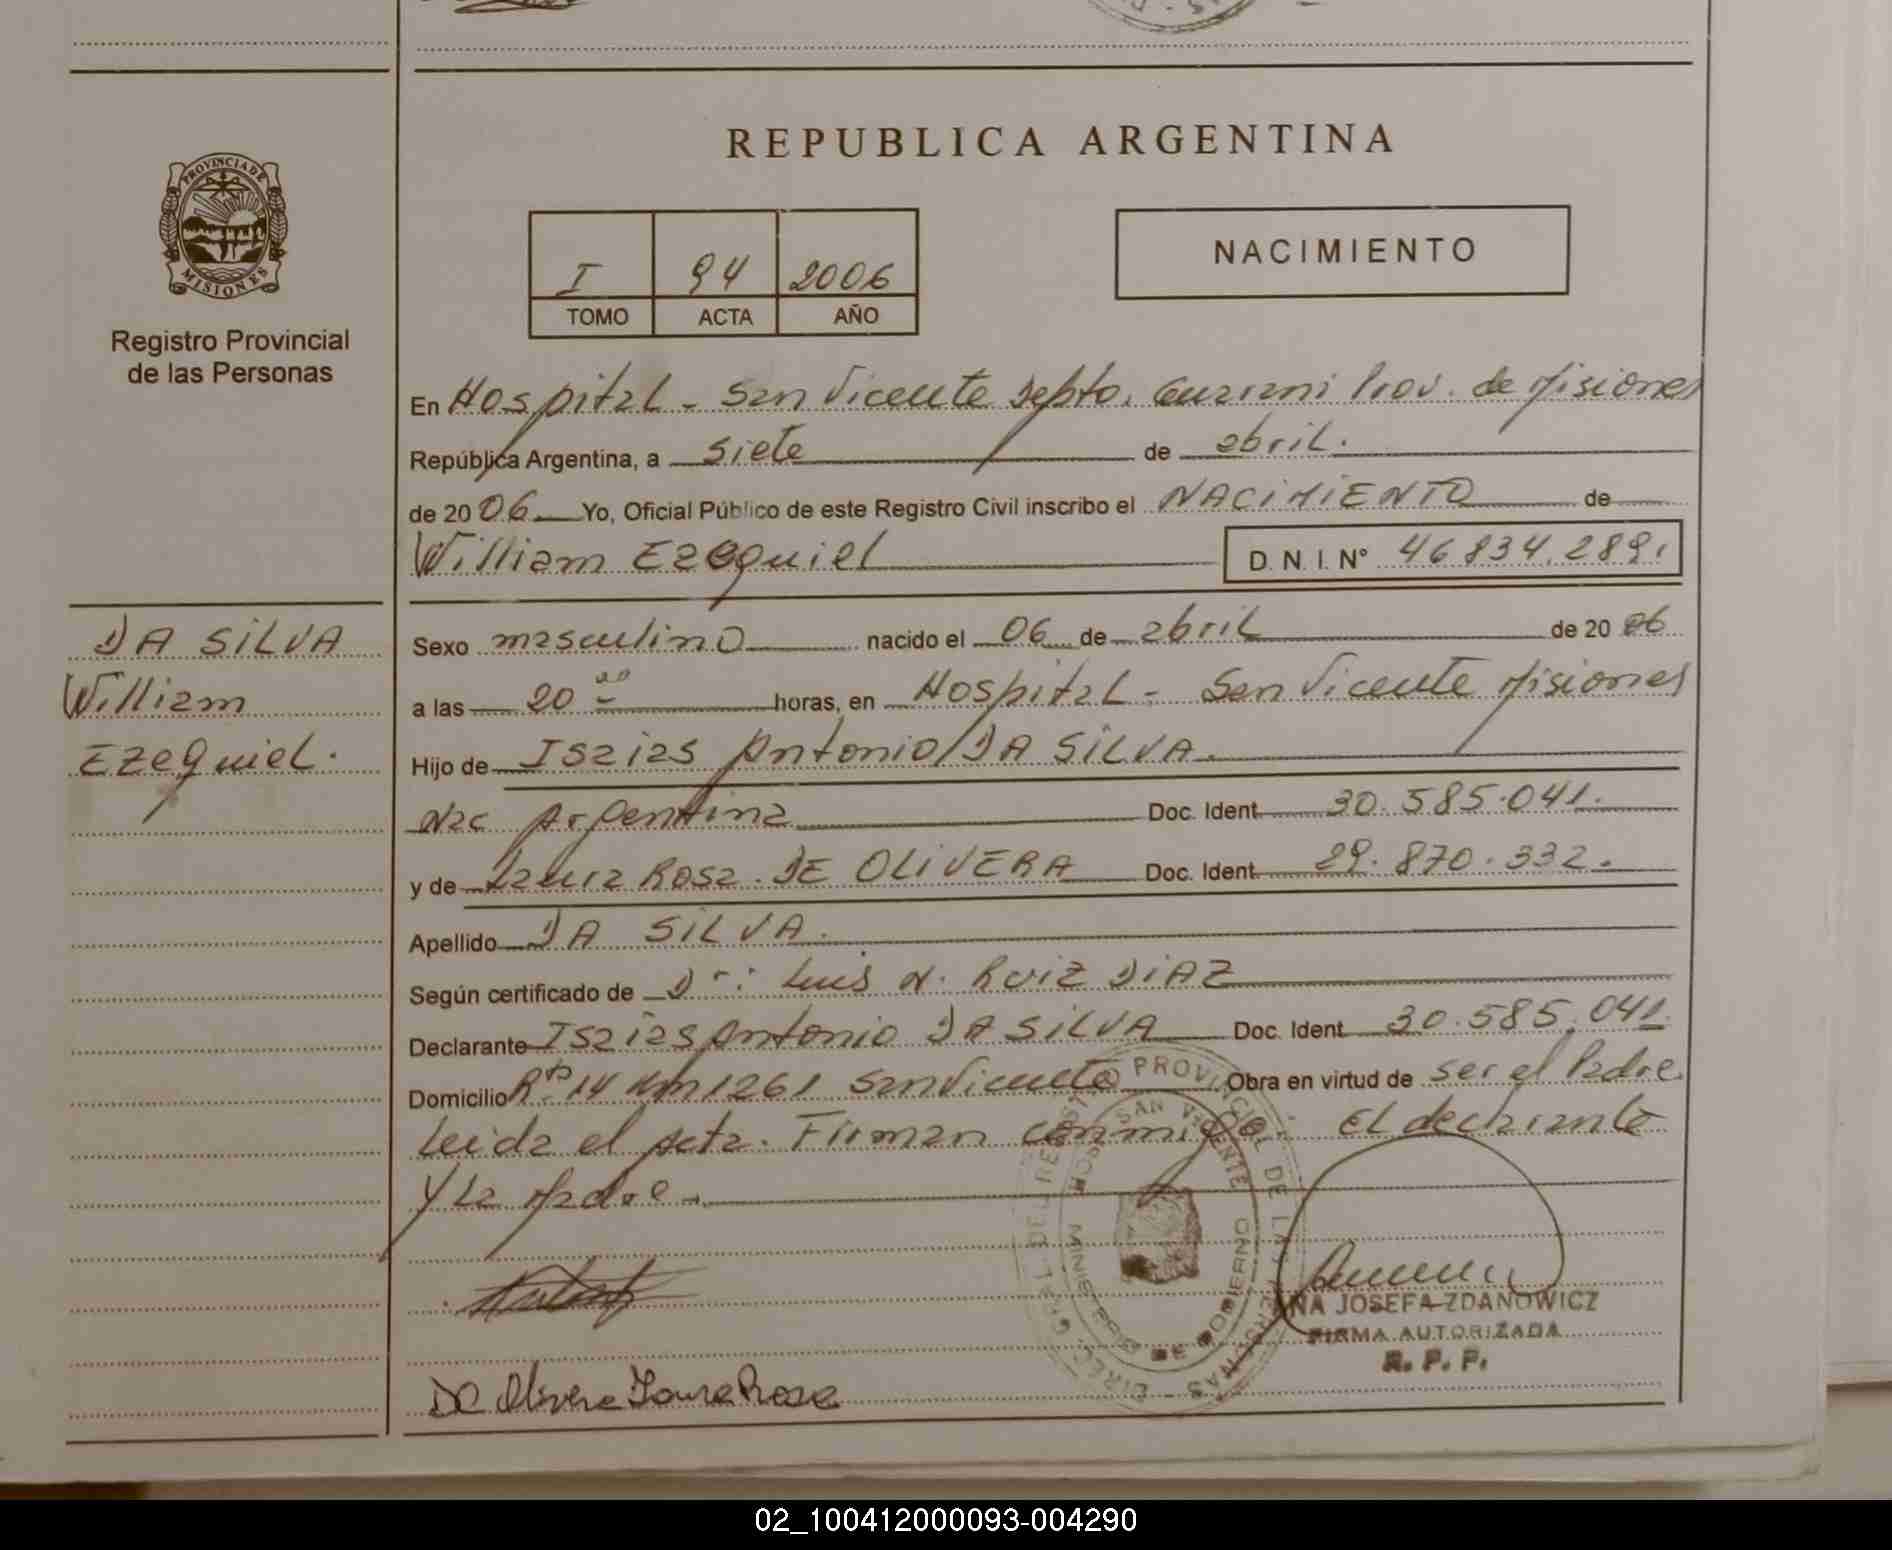 PROVINCIA DE
MISIONES
Registro Provincial
de las Personas
DA SILVA
William
Ezequiel.
REPUBLICA ARGENTINA
I 94 2006
TOMO ACTA AÑO
NACIMIENTO
En Hospital - San Vicente Depto. Guarani Prov. de Misiones
República Argentina, a siete de abril.
de 2006 Yo, Oficial Público de este Registro Civil inscribo el NACIMIENTO de
William Ezequiel D.N.I. N° 46.834.289.
Sexo masculino nacido el 06 de abril de 2006
a las 20 00 horas, en Hospital - San Vicente Misiones
Hijo de Isaias Antonio DA SILVA.
Nac Argentina Doc. Ident. 30.585.041.
y de Laura Rosa. DE OLIVERA Doc. Ident. 29.870.332.
Apellido DA SILVA.
Según certificado de Dr.: Luis N. RUIZ DIAZ
Declarante Isaias Antonio DA SILVA Doc. Ident. 30.585.041.
Domicilio Rta 14 Km 1261 San Vicente Obra en virtud de ser el Padre.
Leida el Acta. Firman conmigo: El declarante
y La Madre.
DIREC. GRAL. DEL REGISTRO PROVINCIAL DE LAS PERSONAS
HOSP. SAN VICENTE
MINISTERIO DE GOBIERNO
ANA JOSEFA ZDANOWICZ
FIRMA AUTORIZADA
R. P. P.
De Olivera Laura Rosa
02_100412000093-004290